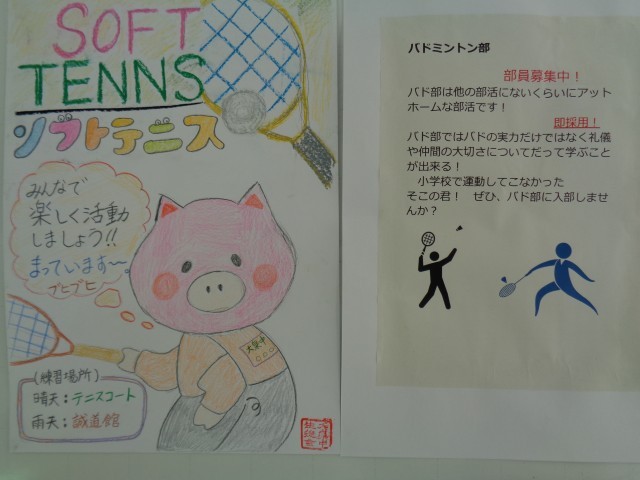 SOFT
TENNS
ソフトテニス
みんなで
楽しく活動
しましょう!!
まっています〜
ブヒブヒ
大集中
(練習場所)
晴天:テニスコート
雨天:誠道館
バドミントン部
部員募集中！
バド部は他の部活にないくらいにアット
ホームな部活です！
即採用！
バド部ではバドの実力だけではなく礼儀
や仲間の大切さについてだって学ぶこと
が出来る！
小学校で運動してこなかった
そこの君！　ぜひ、バド部に入部しませ
んか？